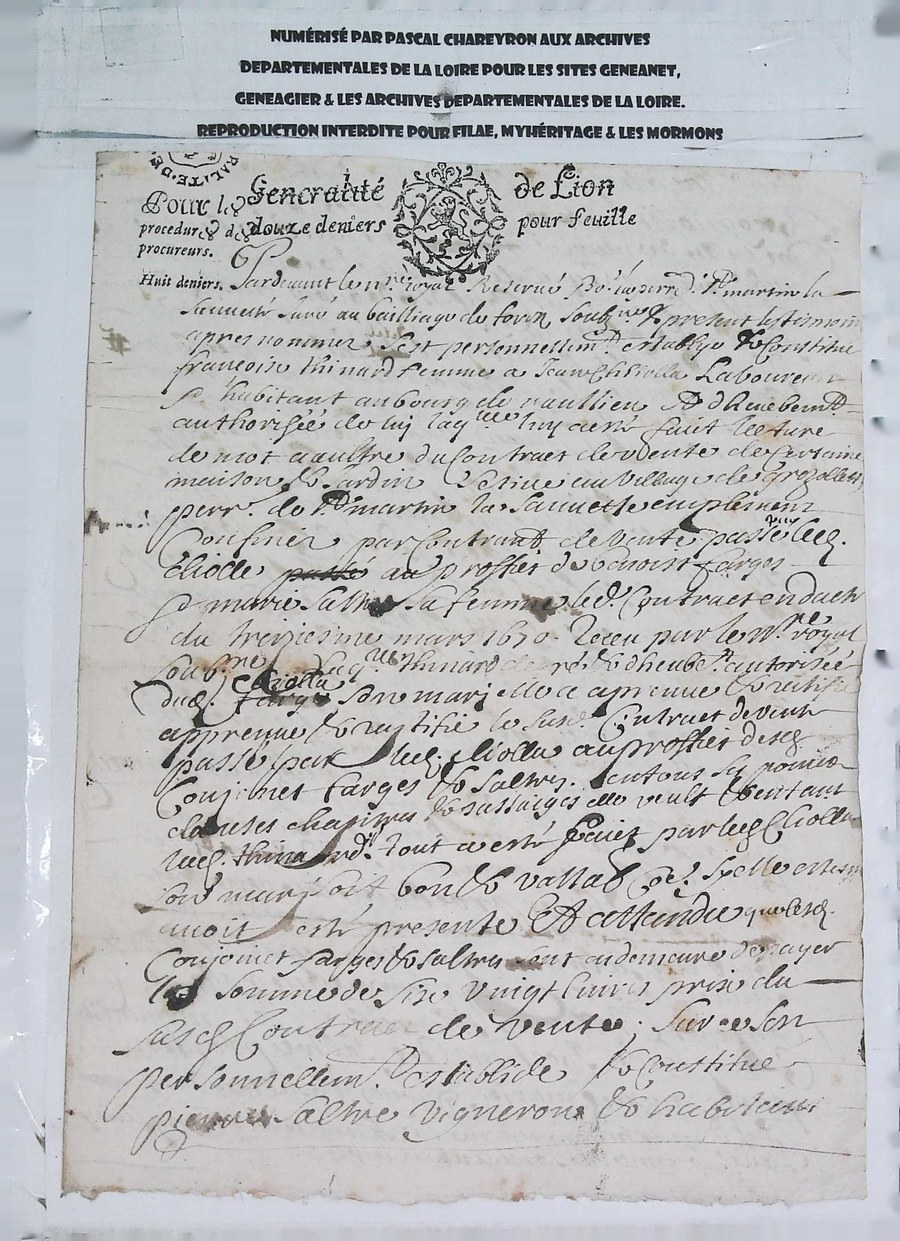 NUMÉRISÉ PAR PASCAL CHAREYRON AUX ARCHIVES
DEPARTEMENTALES DE LA LOIRE POUR LES SITES GENEANET,
GENEAGIER & LES ARCHIVES DEPARTEMENTALES DE LA LOIRE.
REPRODUCTION INTERDITE POUR FILAE, MYHÉRITAGE & LES MORMONS
Generalité de Lion
Pour les douze deniers pour feuille
procedures des
procureurs.
Huit deniers.
Pardevant le nre royal Reservé martin la
Sauveté Juré au bailliage de forez soubzne & present les tesmoin
apres nommez Sest personnellemt establye & Constitué
francoise thinard femme a Jean Cliolla Laboureur
habitant au bourg de
authorisée de luy laqlle luy a esté faict lecture
de mot a aultre du Contract de vente de certaine
maison & Jardin au village de grezolles
de martin la Sauveté emplement
Confinez par Contract de vente passé par led.
Cliolle passé au proffict de benoist farges
marie Saltre sa femme led. Contract en datte
du treiziesme mars 1670 Receu par le nre royal
soubne laqlle thinard de gré & autorisée
dud. Cliolla farges son mari elle a apreuué & rattifié
appreuue & rattifie le susd. Contract de vente
passé par led. Cliolla au proffict desd.
Conjoinct farges & Saltres en tous ses poincts
clauses chapitres & passaiges elle veult & entant
thinard tout a esté faict par led Cliolla
son mari soit bon & vallable Sy elle
avoit esté presente Et attandu que lesd.
Conjoinct farges & Saltres sont au demeure de payer
la somme de six vingt livres prix du
susd Contract de vente, sur ce son
personnellemt establide & Constitué
pierre Saltre vigneron & habitant